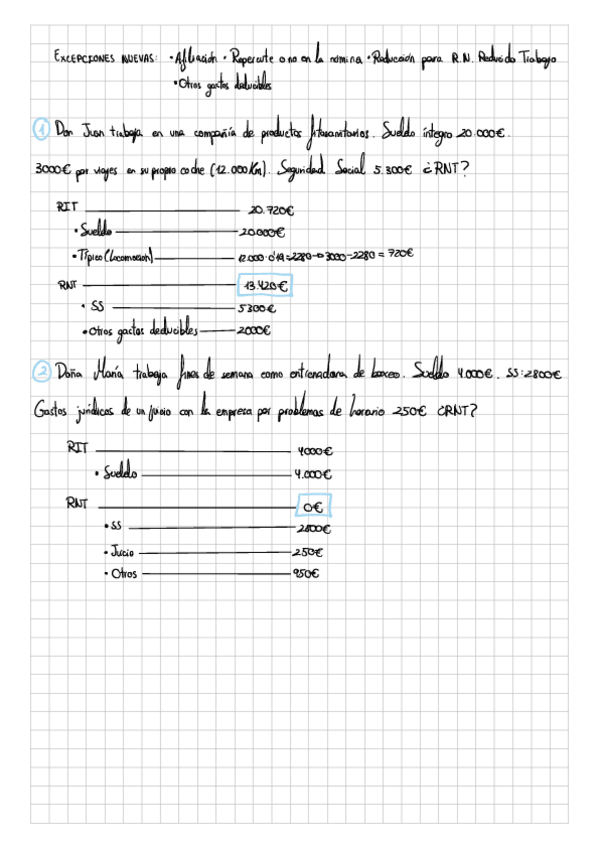 EXCEPCIONES NUEVAS: • Afiliación • Repercute o no en la nómina • Reducción para R.N. Reducido Trabajo
• Otros gastos deducibles
1 Don Juan trabaja en una compañía de productos fitosanitarios. Sueldo íntegro 20.000€.
3000€ por viajes en su propio coche (12.000Km). Seguridad Social 5.300€ ¿RNT?
RIT 20.720€
• Sueldo 20.000€
• Típico (Locomoción) 12.000 · 0'19 = 2280 → 3000 - 2280 = 720€
RNT 13.420€
• SS 5300€
• Otros gastos deducibles 2000€
2 Doña María trabaja fines de semana como entrenadora de boxeo. Sueldo 4.000€. SS: 2800€
Gastos jurídicos de un juicio con la empresa por problemas de horario 250€ ¿RNT?
RIT 4000€
• Sueldo 4.000€
RNT 0€
• SS 2800€
• Juicio 250€
• Otros 950€